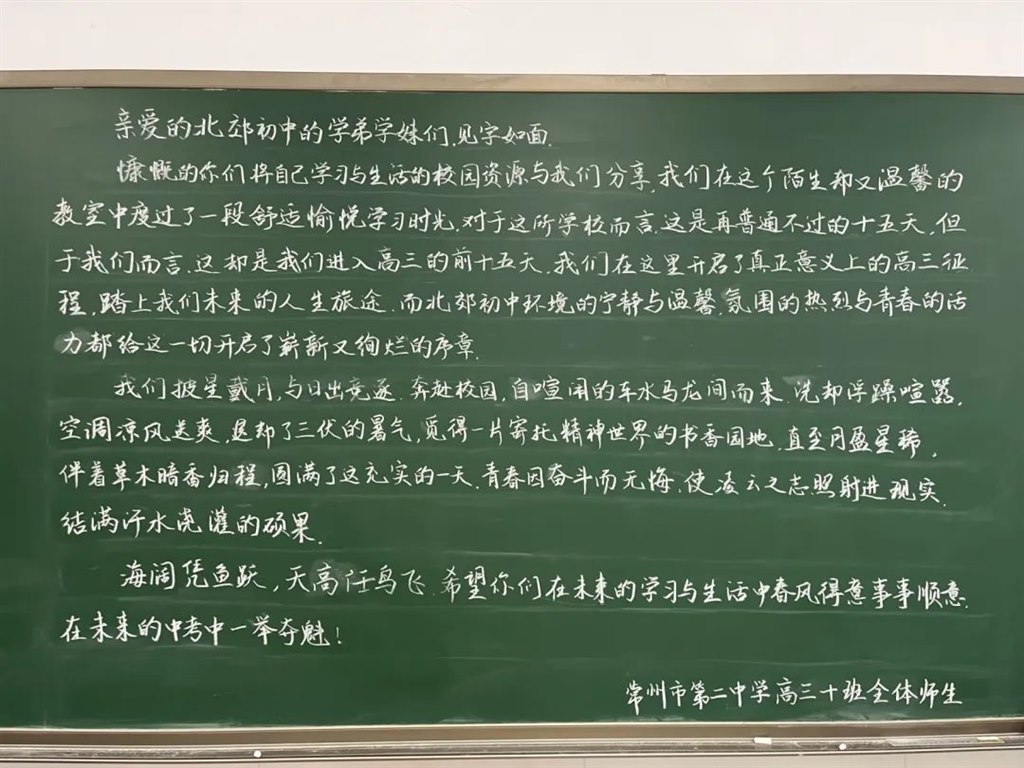 亲爱的北郊初中的学弟学妹们,见字如面.
慷慨的你们将自己学习与生活的校园资源与我们分享,我们在这个陌生却又温馨的
教室中度过了一段舒适愉悦学习时光.对于这所学校而言,这是再普通不过的十五天,但
于我们而言,这却是我们进入高三的前十五天.我们在这里开启了真正意义上的高三征
程,踏上我们未来的人生旅途.而北郊初中环境的宁静与温馨,氛围的热烈与青春的活
力都给这一切开启了崭新又绚烂的序章.
我们披星戴月,与日出竞逐.奔赴校园,自喧闹的车水马龙间而来.洗却浮躁喧嚣,
空调凉风送爽,退却了三伏的暑气,觅得一片寄托精神世界的书香园地,直至月盈星稀,
伴着草木暗香归程,圆满了这充实的一天.青春因奋斗而无悔.使凌云之志照射进现实.
结满汗水浇灌的硕果.
海阔凭鱼跃,天高任鸟飞.希望你们在未来的学习与生活中春风得意事事顺意.
在未来的中考中一举夺魁!
常州市第二中学高三十班全体师生